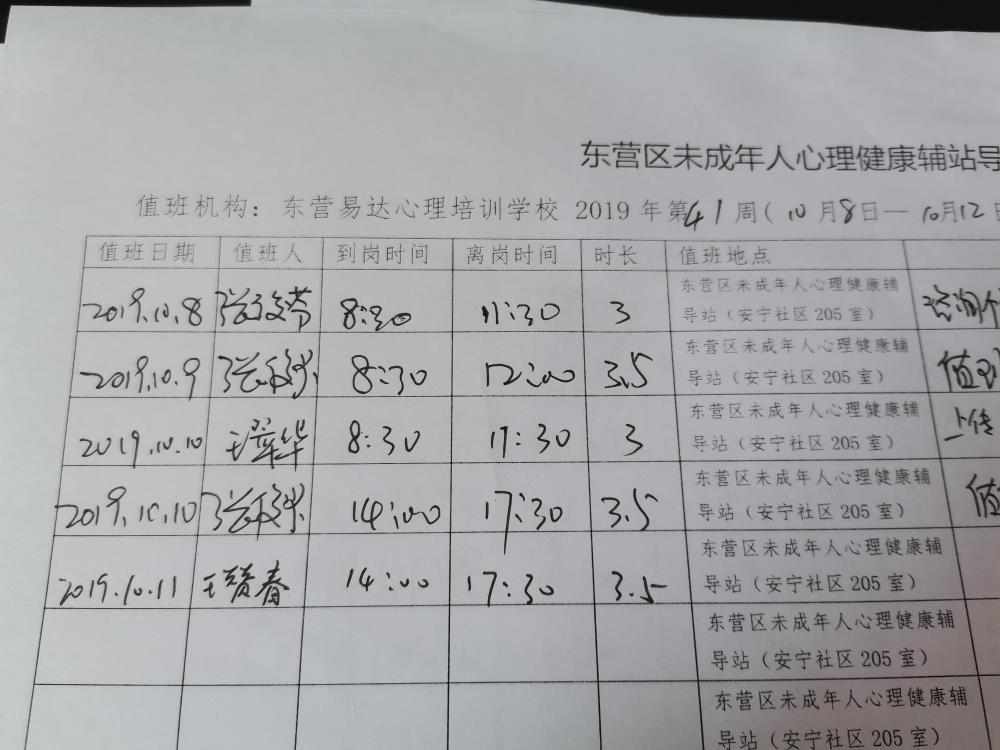 东营区未成年人心理健康辅站导
值班机构：东营易达心理培训学校 2019 年第41周（10月8日—10月12日
值班日期 值班人 到岗时间 离岗时间 时长 值班地点
东营区未成年人心理健康辅
2019.10.8 8:30 11:30 3 导站（安宁社区 205 室）
东营区未成年人心理健康辅
2019.10.9 8:30 12:00 3.5 导站（安宁社区 205 室） 值
东营区未成年人心理健康辅
2019.10.10 8:30 11:30 3 导站（安宁社区 205 室） 上传
东营区未成年人心理健康辅
2019.10.10 14:00 17:30 3.5 导站（安宁社区 205 室） 值
东营区未成年人心理健康辅
2019.10.11 王赞春 14:00 17:30 3.5 导站（安宁社区 205 室）
东营区未成年人心理健康辅
导站（安宁社区 205 室）
东营区未成年人心理健康辅
导站（安宁社区 205 室）